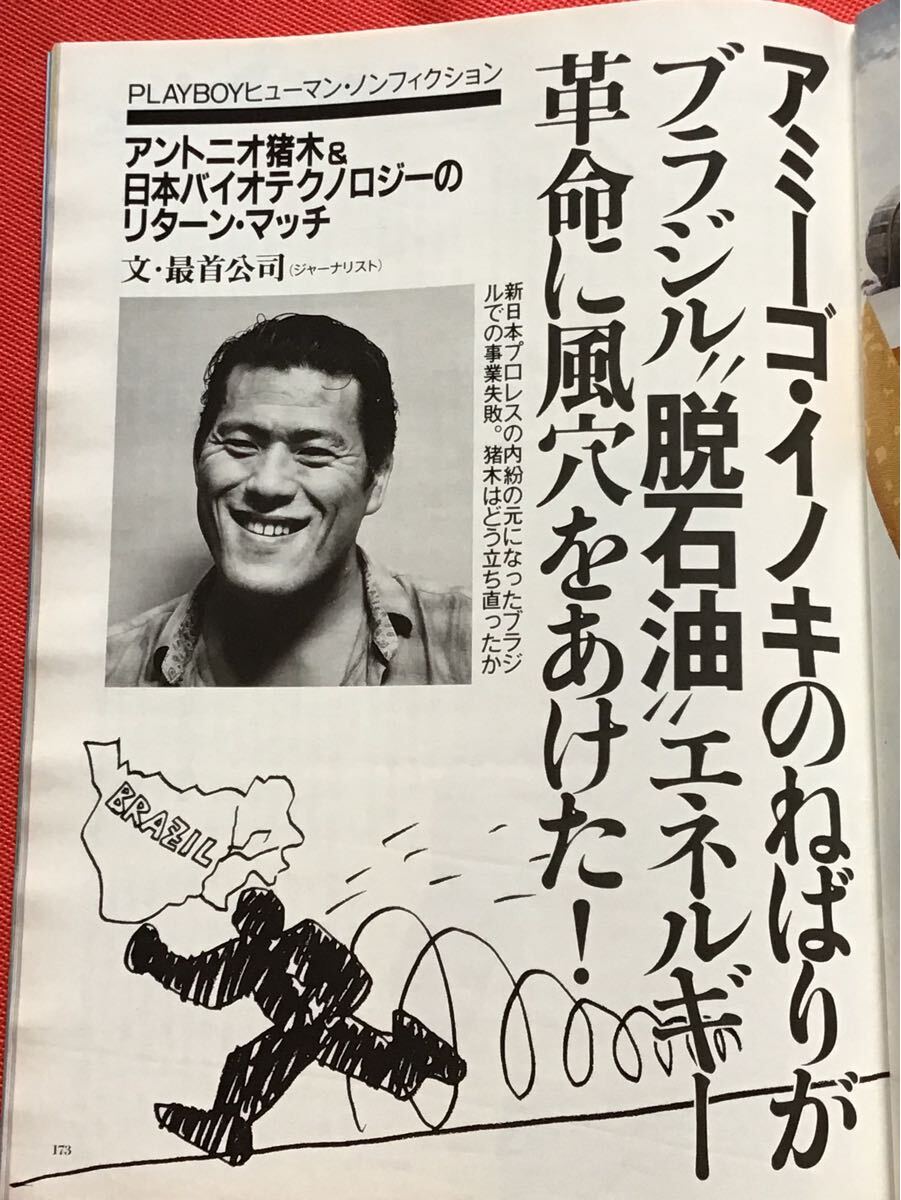 アミーゴ・イノキのねばりが
ブラジル〝脱石油〟エネルギー
革命に風穴をあけた!
PLAYBOYヒューマン・ノンフィクション
アントニオ猪木&
日本バイオテクノロジーの
リターン・マッチ
文・最首公司(ジャーナリスト)
新日本プロレスの内紛の元になったブラジ
ルでの事業失敗。猪木はどう立ち直ったか
BRAZIL
173